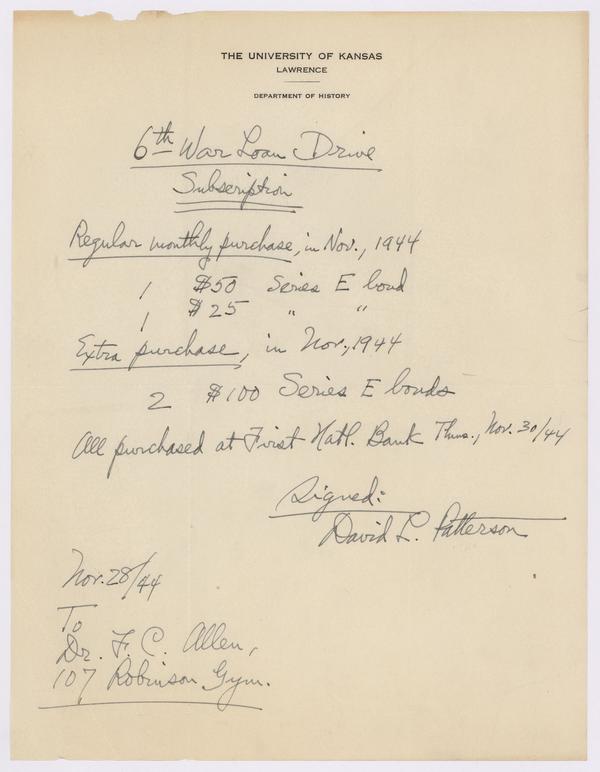 THE UNIVERSITY OF KANSAS
LAWRENCE
DEPARTMENT OF HISTORY
6th War Loan Drive
Subscription
Regular monthly purchase, in Nov., 1944
1 $50 Series E bond
1 $25 " "
Extra purchase, in Nov., 1944
2 $100 Series E bonds
All purchased at First Natl. Bank Thurs., Nov. 30/44
Signed:
David L. Patterson
Nov. 28/44
To
Dr. F. C. Allen,
107 Robinson Gym.